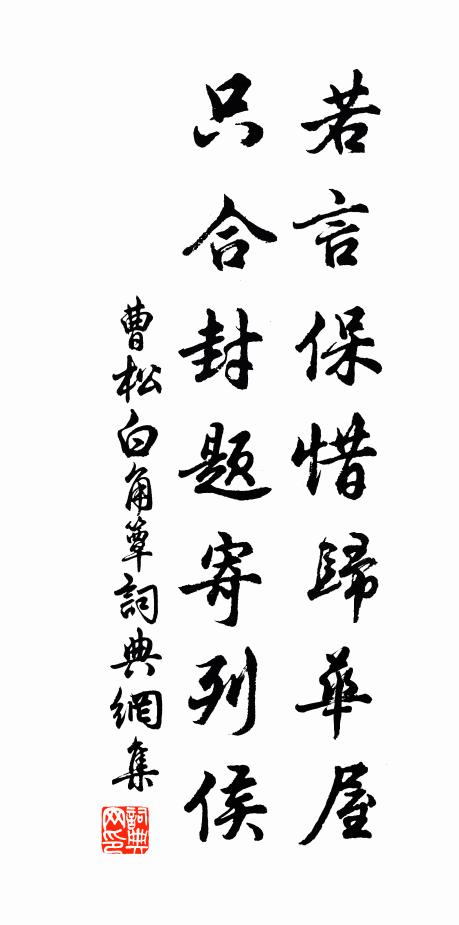 若言保惜歸華屋
只合封題寄列侯
曹松白角簟詞典網集
詞典网印